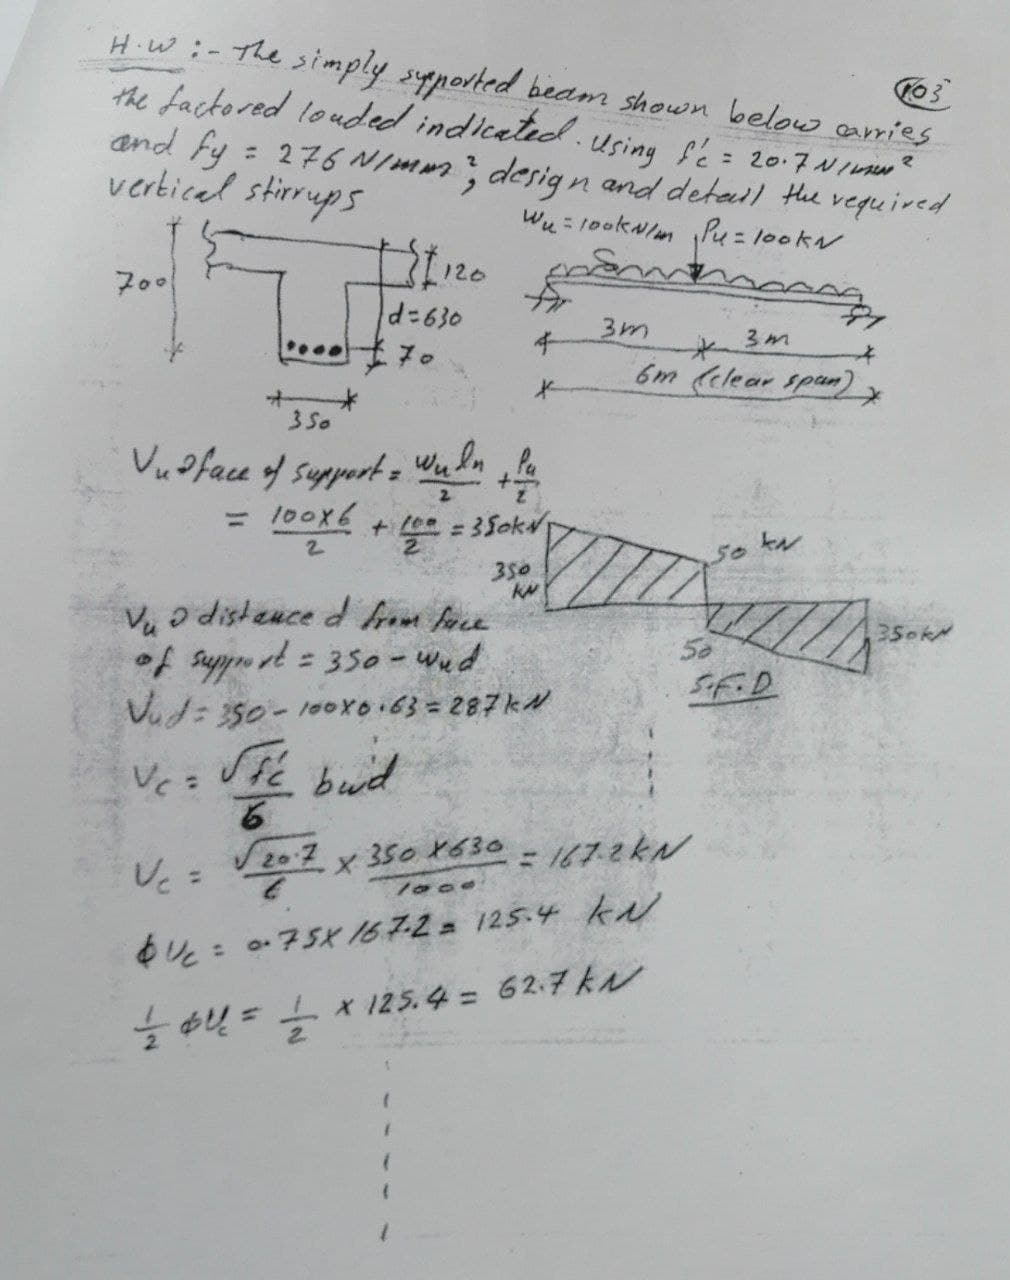 103
H.W :- The simply supported beam shown below carries
the factored louded indicated. Using f'c = 20.7 N/mm²
and fy = 276 N/mm², design and detail the required
vertical stirrups
Wu = 100kN/m Pu = 100kN
700
120
d=630
70
350
3m 3m
6m (clear span)
Vu @ face of support = Wu ln / 2 + Pu / 2
= 100x6 / 2 + 100 / 2 = 350kN
50 kN
350 kN
350kN
50
S.F.D
Vu @ distance d from face
of support = 350 - Wud
Vud = 350 - 100x0.63 = 287kN
Vc = √f'c / 6 bwd
Vc = √20.7 / 6 x 350 x630 / 1000 = 167.2kN
ϕVc = 0.75x 167.2 = 125.4 kN
1/2 ϕVc = 1/2 x 125.4 = 62.7kN